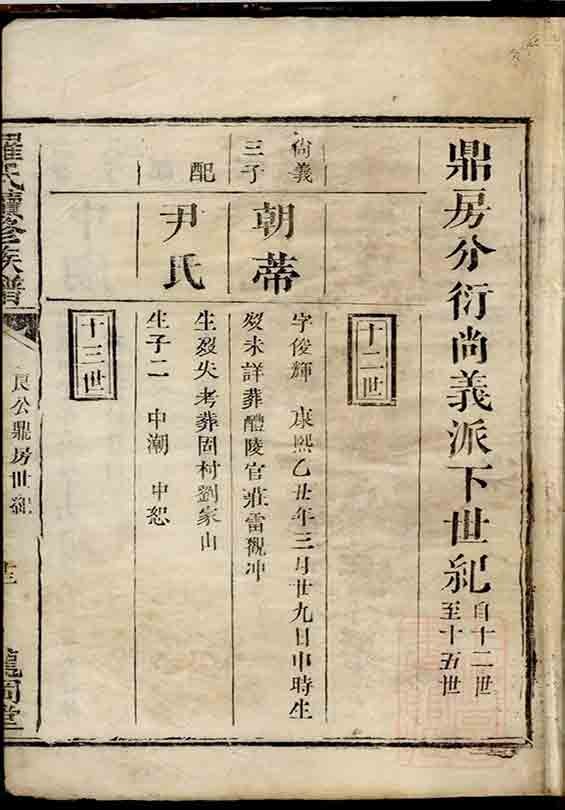 鼎房分衍尚義派下世紀
自十二世
至十五世
十二世
尚義
三子
朝蒂
字俊輝 康熙乙丑年三月廿九日申時生
歿未詳葬醴陵官莊雷觀冲
配
尹氏
生歿失考葬固村劉家山
生子二 中潮 中恕
十三世
羅氏續修族譜
良公鼎房世紀